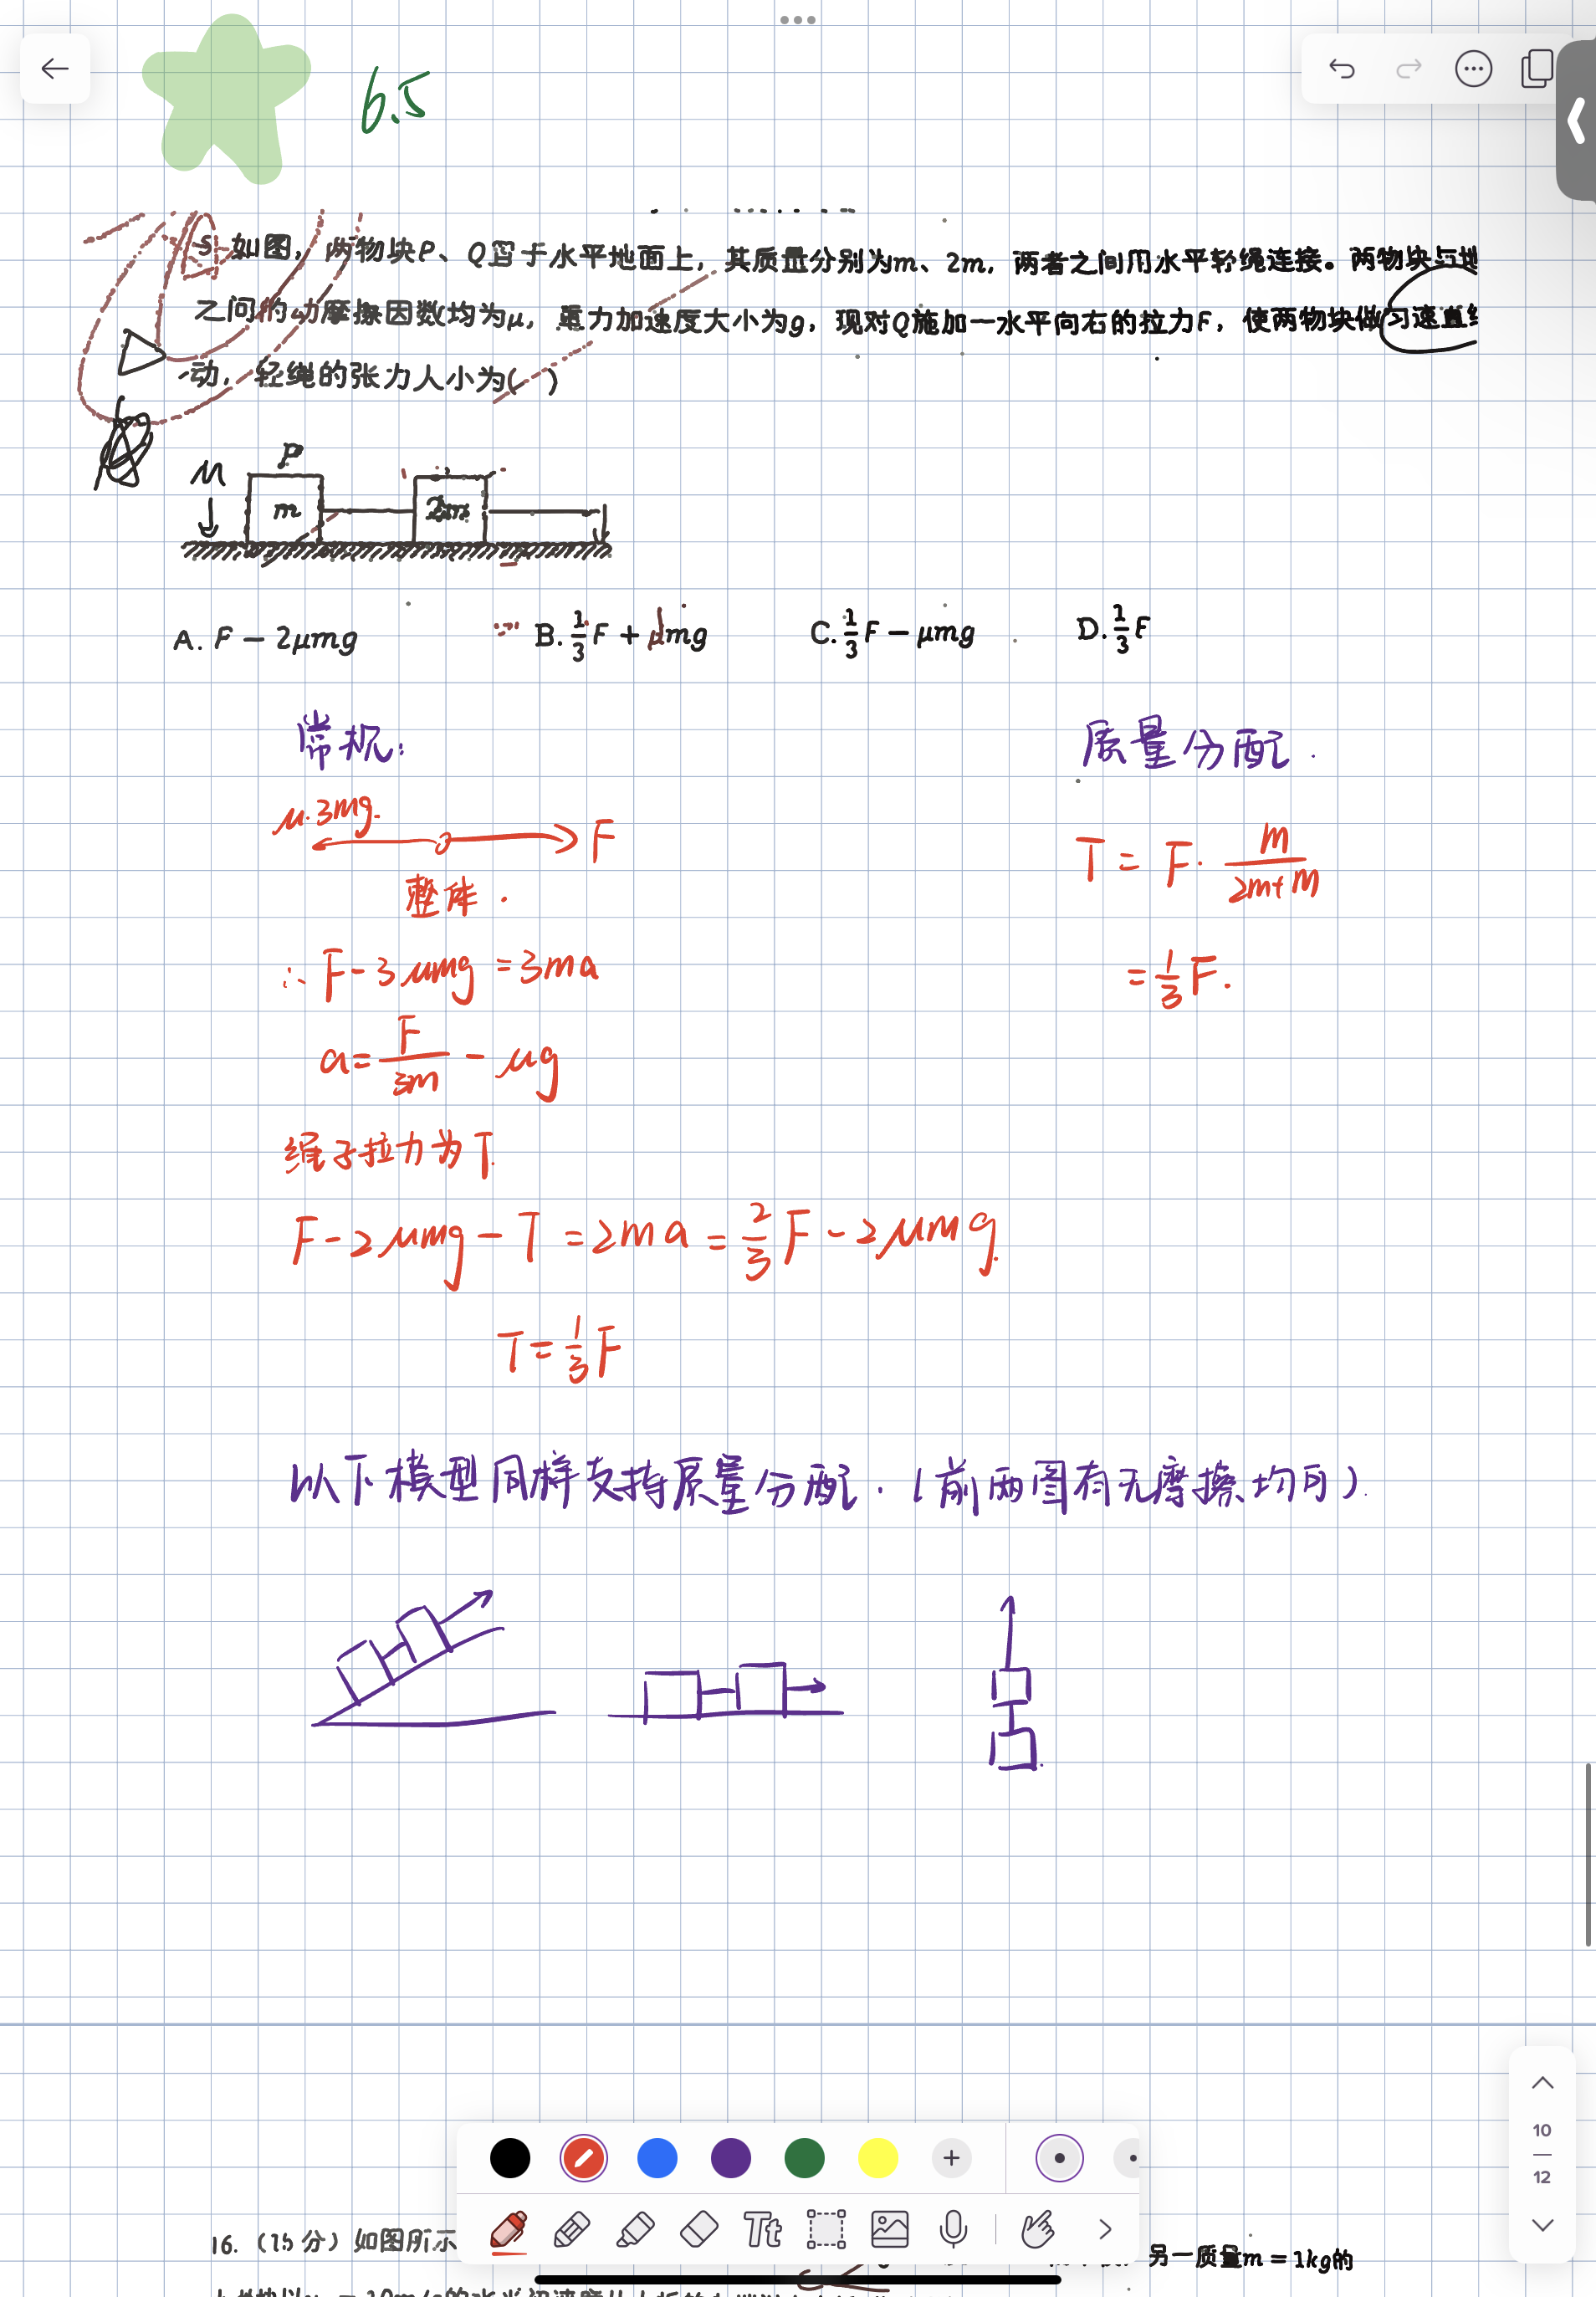 6.5
5 如图，两物块P、Q置于水平地面上，其质量分别为m、2m，两者之间用水平轻绳连接。两物块与地
之间的动摩擦因数均为μ，重力加速度大小为g，现对Q施加一水平向右的拉力F，使两物块做匀速直线
动，轻绳的张力大小为( )
P
m
2m
A. F − 2μmg B. 1/3 F + μmg C. 1/3 F − μmg D. 1/3 F
常规:
质量分配.
μ·3mg. F
整体.
T = F· m/(2m+m)
∴ F-3μmg =3ma
= 1/3 F.
a= F/3m - μg
绳子拉力为T.
F-2μmg-T =2ma = 2/3 F-2μmg.
T= 1/3 F
以下模型同样支持质量分配.(前两图有无摩擦均可).
10
12
Tt
16.（15 分）如图所示
另一质量m = 1kg的